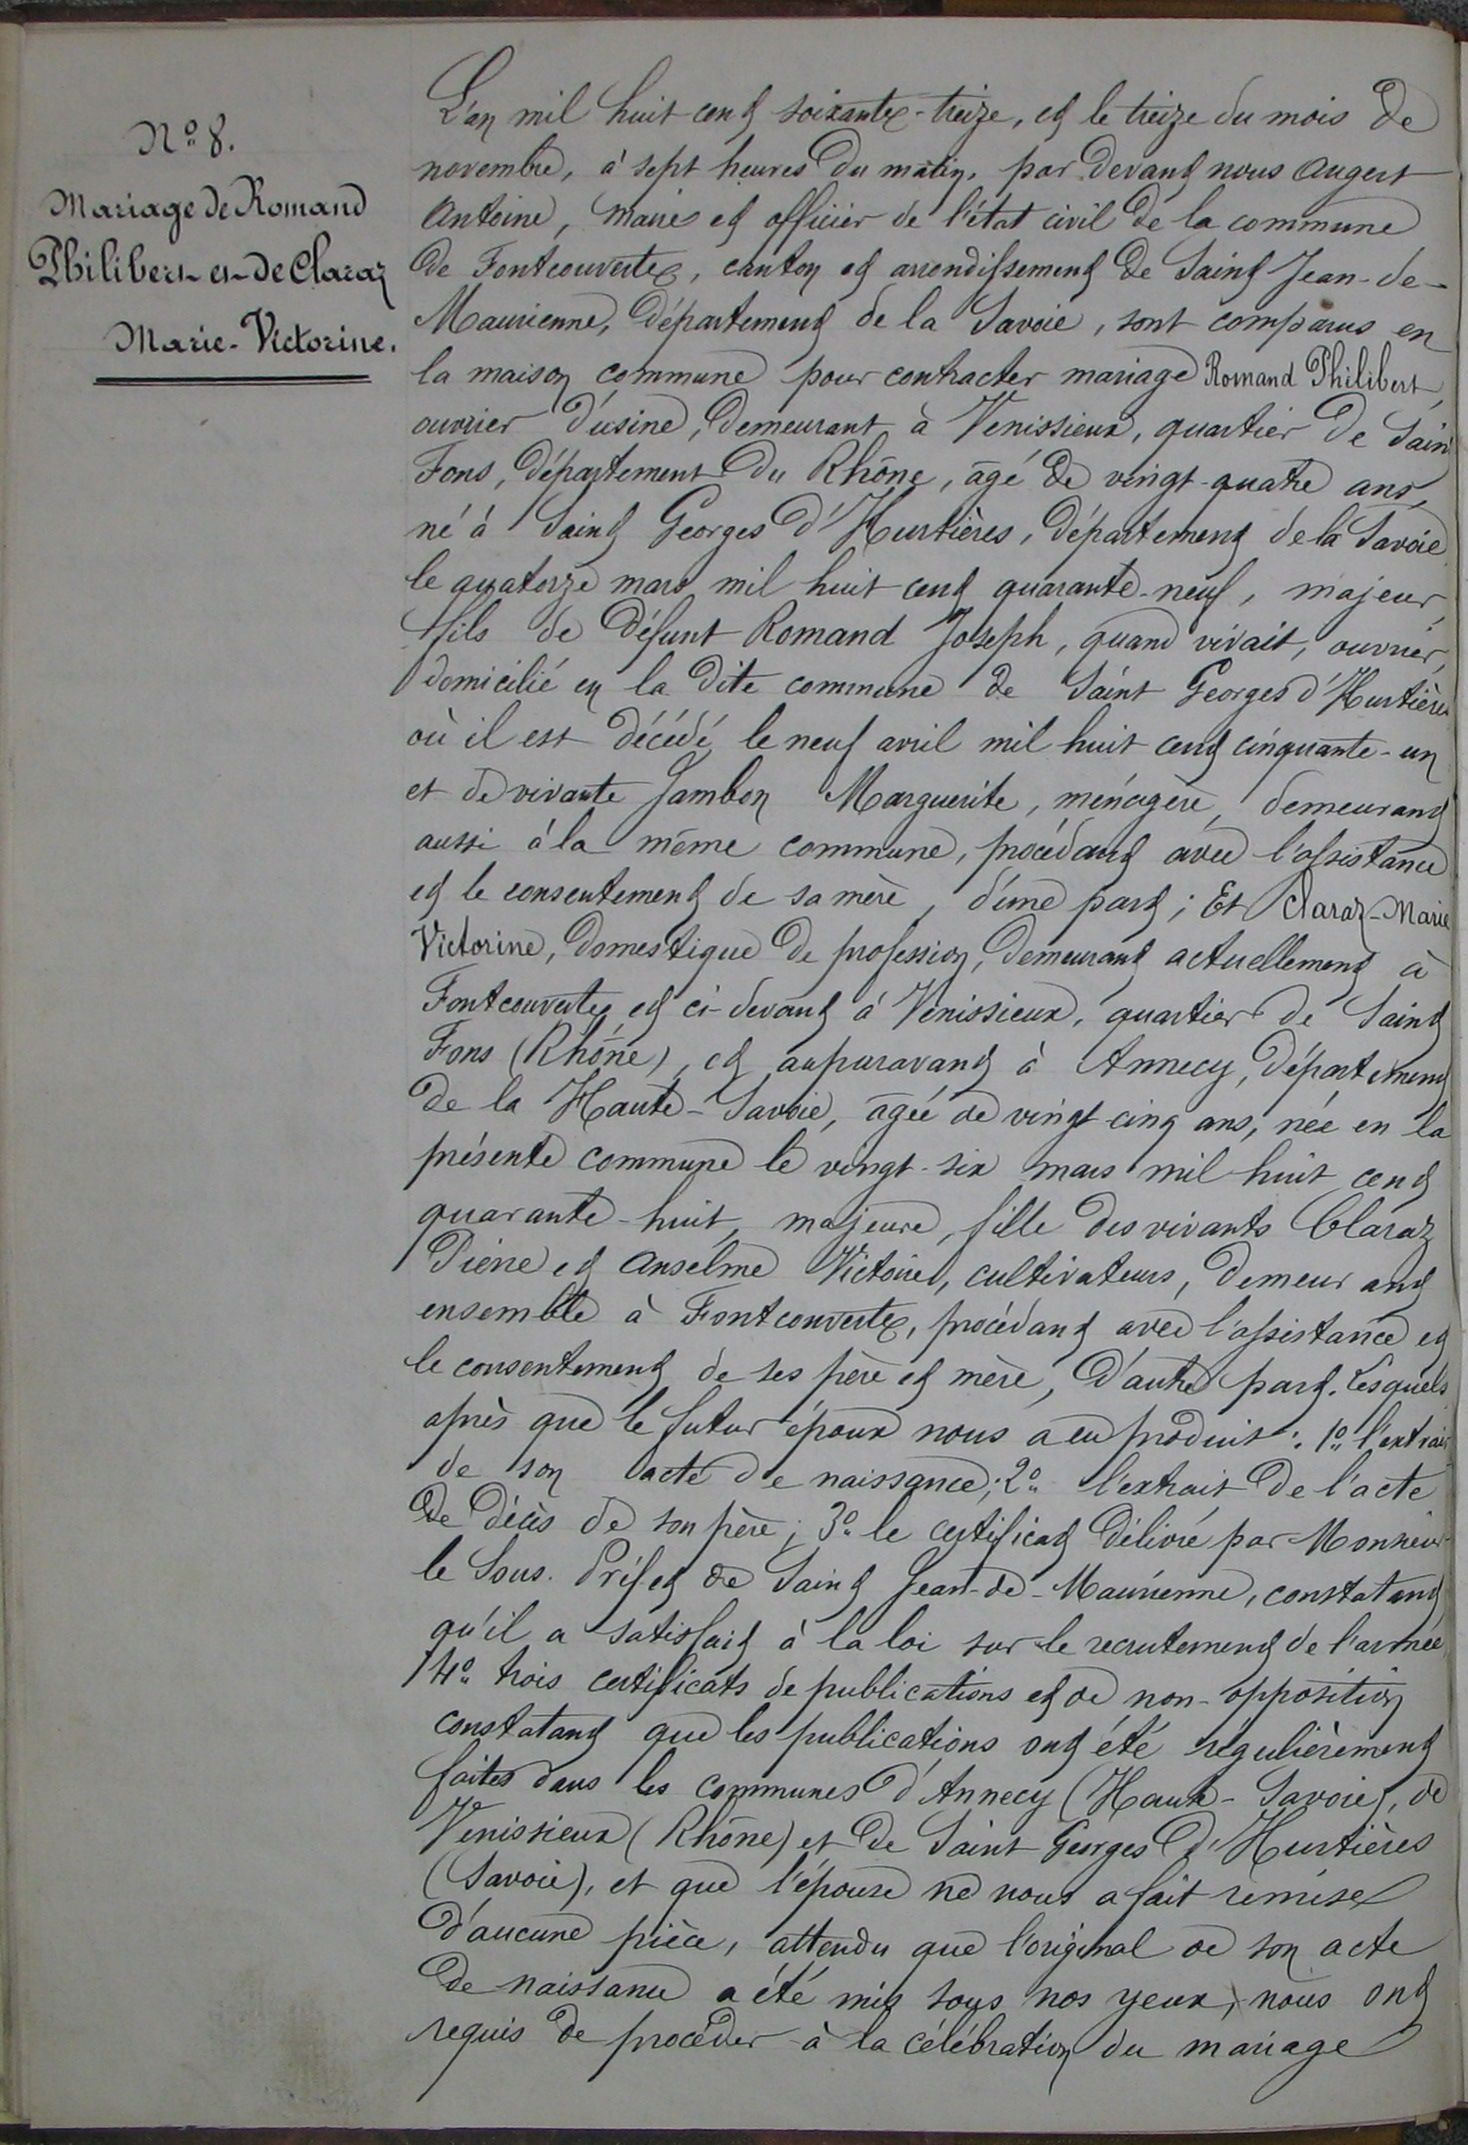 N° 8.
Mariage de Romand
Philibert et de Claraz
Marie-Victorine.
L'an mil huit cent soixante-treize, et le treize du mois de
novembre, à sept heures du matin, par devant nous Augert
Antoine, Maire et officier de l'état civil de la commune
de Fontcouverte, canton et arrondissement de Saint Jean-de-
Maurienne, département de la Savoie, sont comparus en
la maison commune pour contracter mariage Romand Philibert,
ouvrier d'usine, demeurant à Venissieux, quartier de Saint
Fons, département du Rhône, âgé de vingt-quatre ans,
né à Saint Georges d'Hurtières, département de la Savoie
le quatorze mars mil huit cent quarante-neuf, majeur,
fils de défunt Romand Joseph, quand vivait, ouvrier,
domicilié en la dite commune de Saint Georges d'Hurtières
où il est décédé le neuf avril mil huit cent cinquante-un
et de vivante Jambon Marguerite, ménagère, demeurant
aussi à la même commune, procédant avec l'assistance
et le consentement de sa mère, d'une part; Et Claraz-Marie
Victorine, domestique de profession, demeurant actuellement à
Fontcouverte et ci-devant à Vénissieux, quartier de Saint
Fons (Rhône), et auparavant à Annecy, département
de la Haute-Savoie, âgée de vingt-cinq ans, née en la
présente commune le vingt-six mars mil huit cent
quarante-huit, majeure, fille des vivants Claraz
Pierre et Anselme Victoire, cultivateurs, demeurant
ensemble à Fontcouverte, procédant avec l'assistance et
le consentement de ses père et mère, d'autre part. Lesquels
après que le futur époux nous a eu produit: 1° l'extrait
de son acte de naissance; 2° l'extrait de l'acte
de décès de son père; 3° le certificat délivré par Monsieur
le Sous-Préfet de Saint Jean-de-Maurienne, constatant
qu'il a satisfait à la loi sur le recrutement de l'armée
4° trois certificats de publications et de non-opposition
constatant que les publications ont été régulièrement
faites dans les communes d'Annecy (Haute-Savoie), de
Venissieux (Rhône) et de Saint Georges d'Hurtières
(Savoie), et que l'épouse ne nous a fait remise
d'aucune pièce, attendu que l'original de son acte
de naissance a été mis sous nos yeux, nous ont
requis de procéder à la célébration du mariage